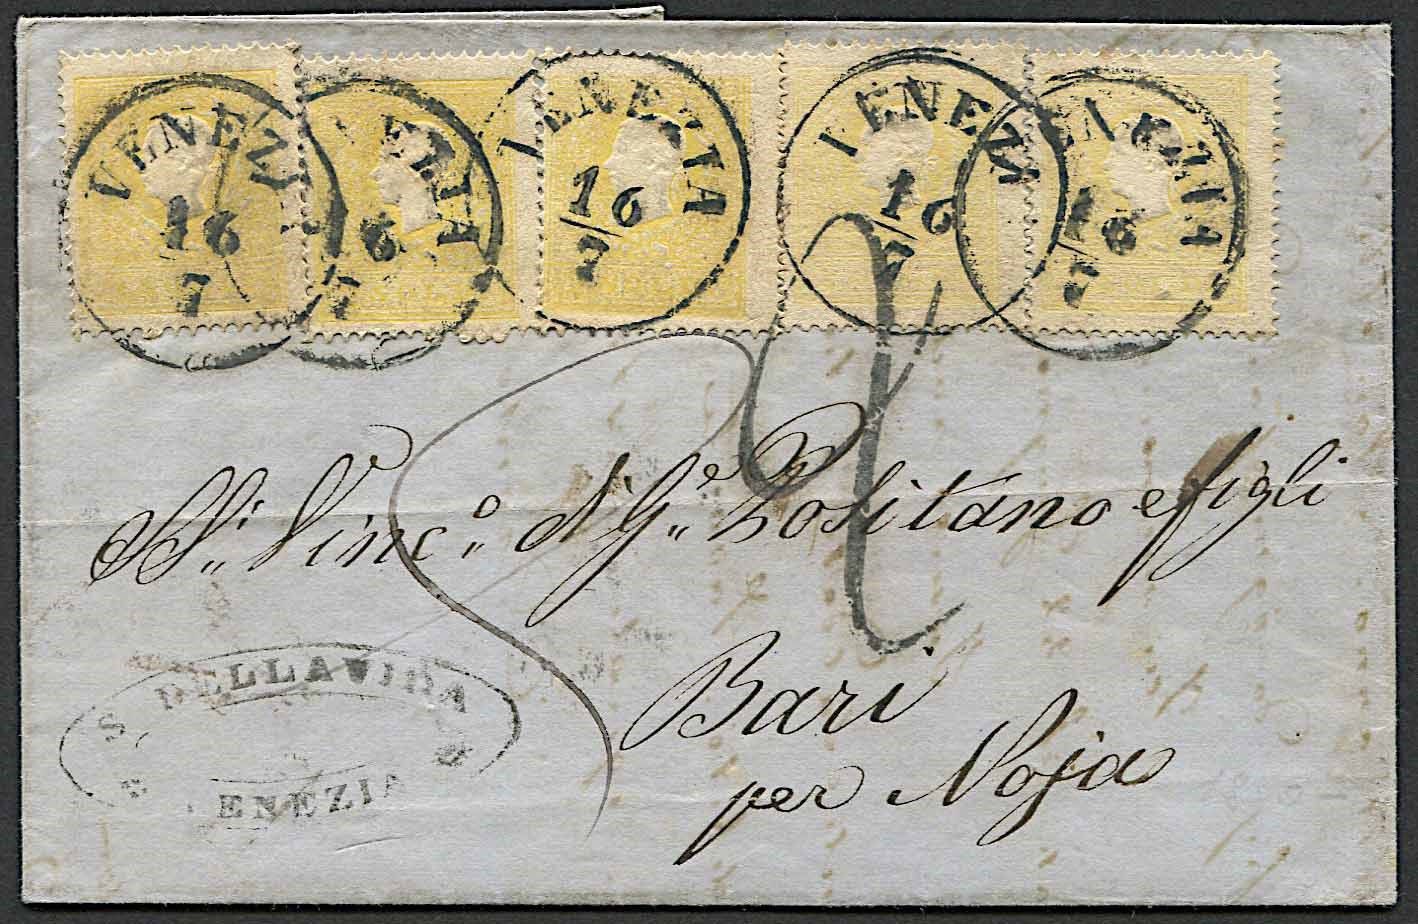 VENEZI
16
7
EZIA
16
7
VENEZIA
16
7
VENEZI
16
7
ENEZIA
16
7
Vinc.º Positano e figli
Bari
per Noja
S. DELLAVIDA
ENEZIA